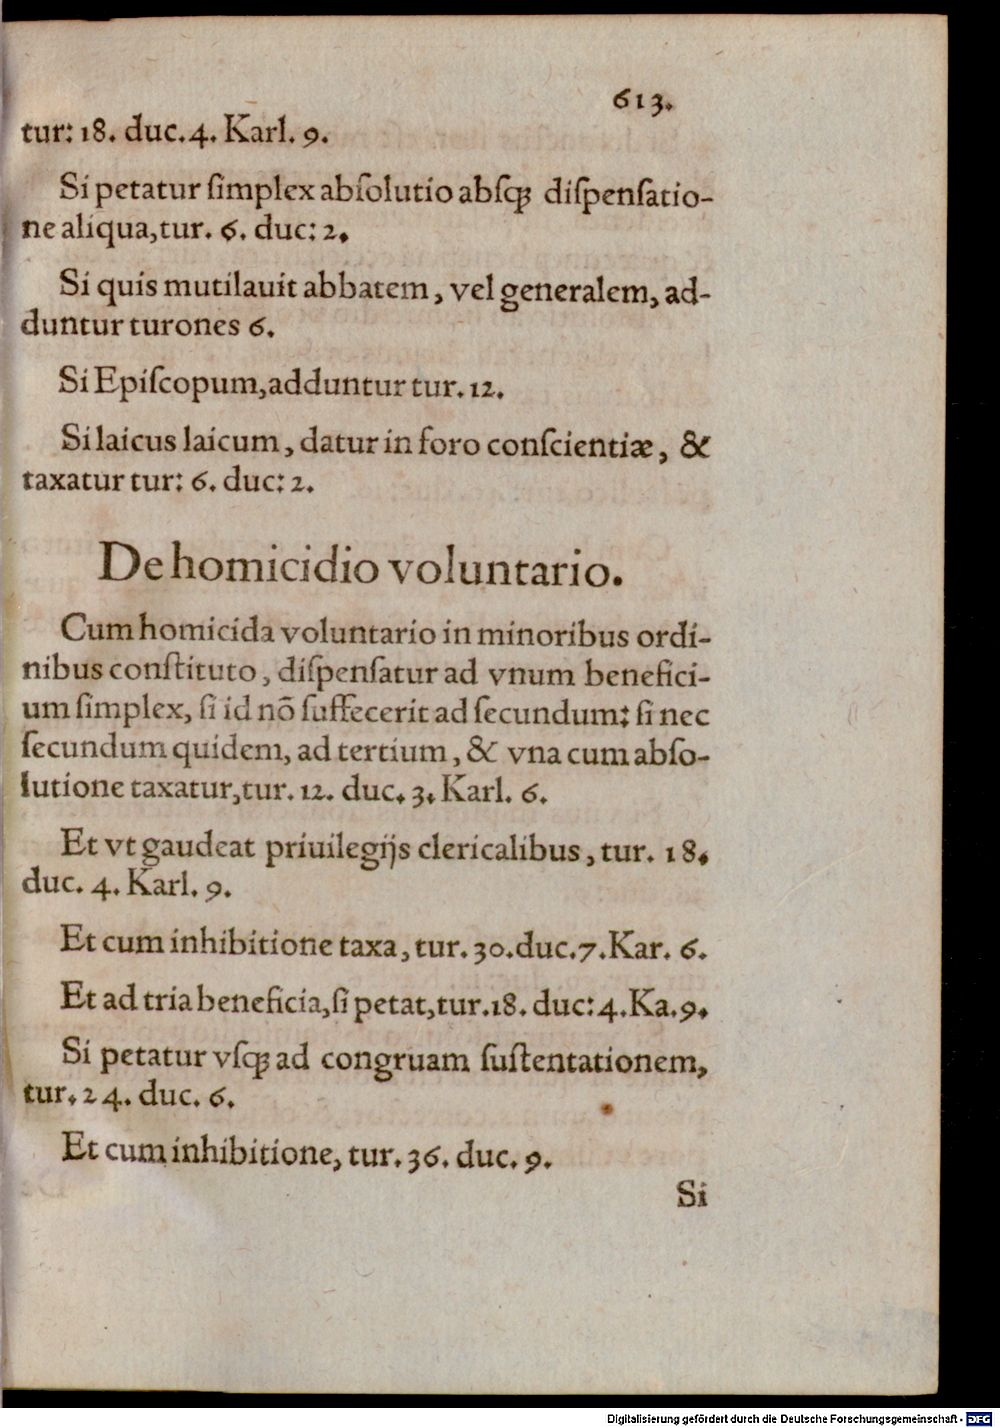 613.
tur: 18. duc. 4. Karl. 9.
Si petatur ſimplex abſolutio abſqꝫ diſpenſatio-
ne aliqua, tur. 6. duc: 2.
Si quis mutilauit abbatem, vel generalem, ad-
duntur turones 6.
Si Epiſcopum, adduntur tur. 12.
Si laicus laicum, datur in foro conſcientiæ, &
taxatur tur: 6. duc: 2.
De homicidio voluntario.
Cum homicida voluntario in minoribus ordi-
nibus conſtituto, diſpenſatur ad vnum benefici-
um ſimplex, ſi id nõ ſuffecerit ad ſecundum: ſi nec
ſecundum quidem, ad tertium, & vna cum abſo-
lutione taxatur, tur. 12. duc. 3. Karl. 6.
Et vt gaudeat priuilegijs clericalibus, tur. 18.
duc. 4. Karl. 9.
Et cum inhibitione taxa, tur. 30. duc. 7. Kar. 6.
Et ad tria beneficia, ſi petat, tur. 18. duc: 4. Ka. 9.
Si petatur vſqꝫ ad congruam ſuſtentationem,
tur. 24. duc. 6.
Et cum inhibitione, tur. 36. duc. 9.
Si
Digitalisierung gefördert durch die Deutsche Forschungsgemeinschaft - DFG